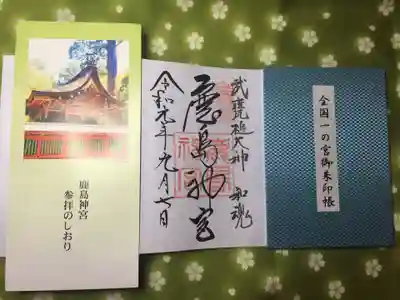 鹿島神宮
参拝のしおり
武甕槌大神 和魂
鹿島神宮
令和元年九月七日
全国一の宮御朱印帳